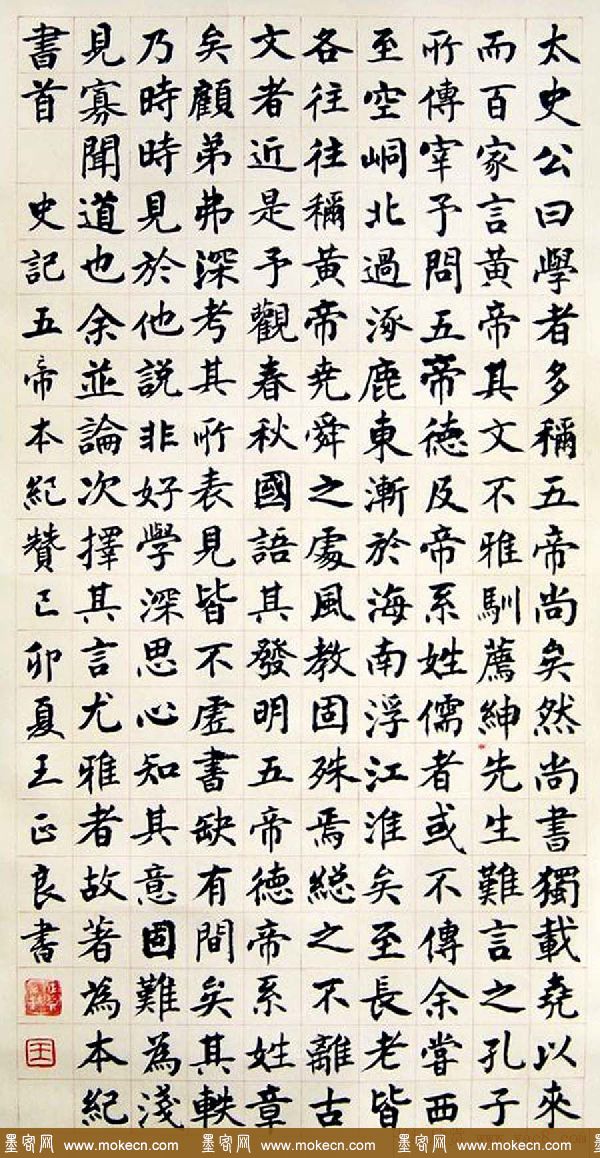 太史公曰學者多稱五帝尚矣然尚書獨載堯以來
而百家言黃帝其文不雅馴薦紳先生難言之孔子
所傳宰予問五帝德及帝系姓儒者或不傳余嘗西
至空峒北過涿鹿東漸於海南浮江淮矣至長老皆
各往往稱黃帝堯舜之處風教固殊焉總之不離古
文者近是予觀春秋國語其發明五帝德帝系姓章
矣顧弟弗深考其所表見皆不虛書缺有間矣其軼
乃時時見於他說非好學深思心知其意固難為淺
見寡聞道也余並論次擇其言尤雅者故著為本紀
書首 史記五帝本紀贊己卯夏王正良書
王
墨客网 www.mokecn.com 墨客网 www.mokecn.com 墨客网 www.mokecn.com